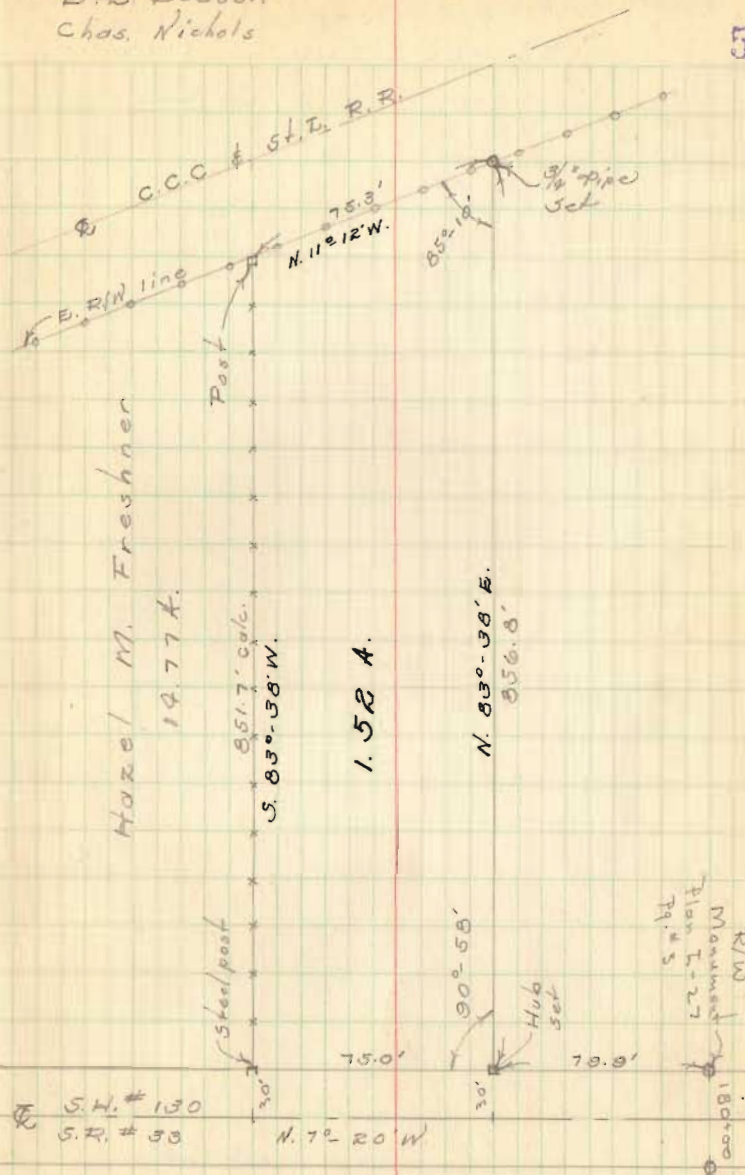 Chas. Nichols
C.C.C & St. L. R.R.
E. R/W line
75.3'
N. 11°-12' W.
85°-10'
3/4" pipe
set
Post
Hazel M. Freshner
14.77 A.
851.7' calc.
S. 83°-38' W.
1.52 A.
N. 83°-38' E.
856.8'
Steel post
90°-58'
Hub
set
R/W
Monument
Plan I-22
Pg. # 5
75.0'
79.9'
30'
30'
180+00
S.H. # 130
S.R. # 33
N. 7°-20' W